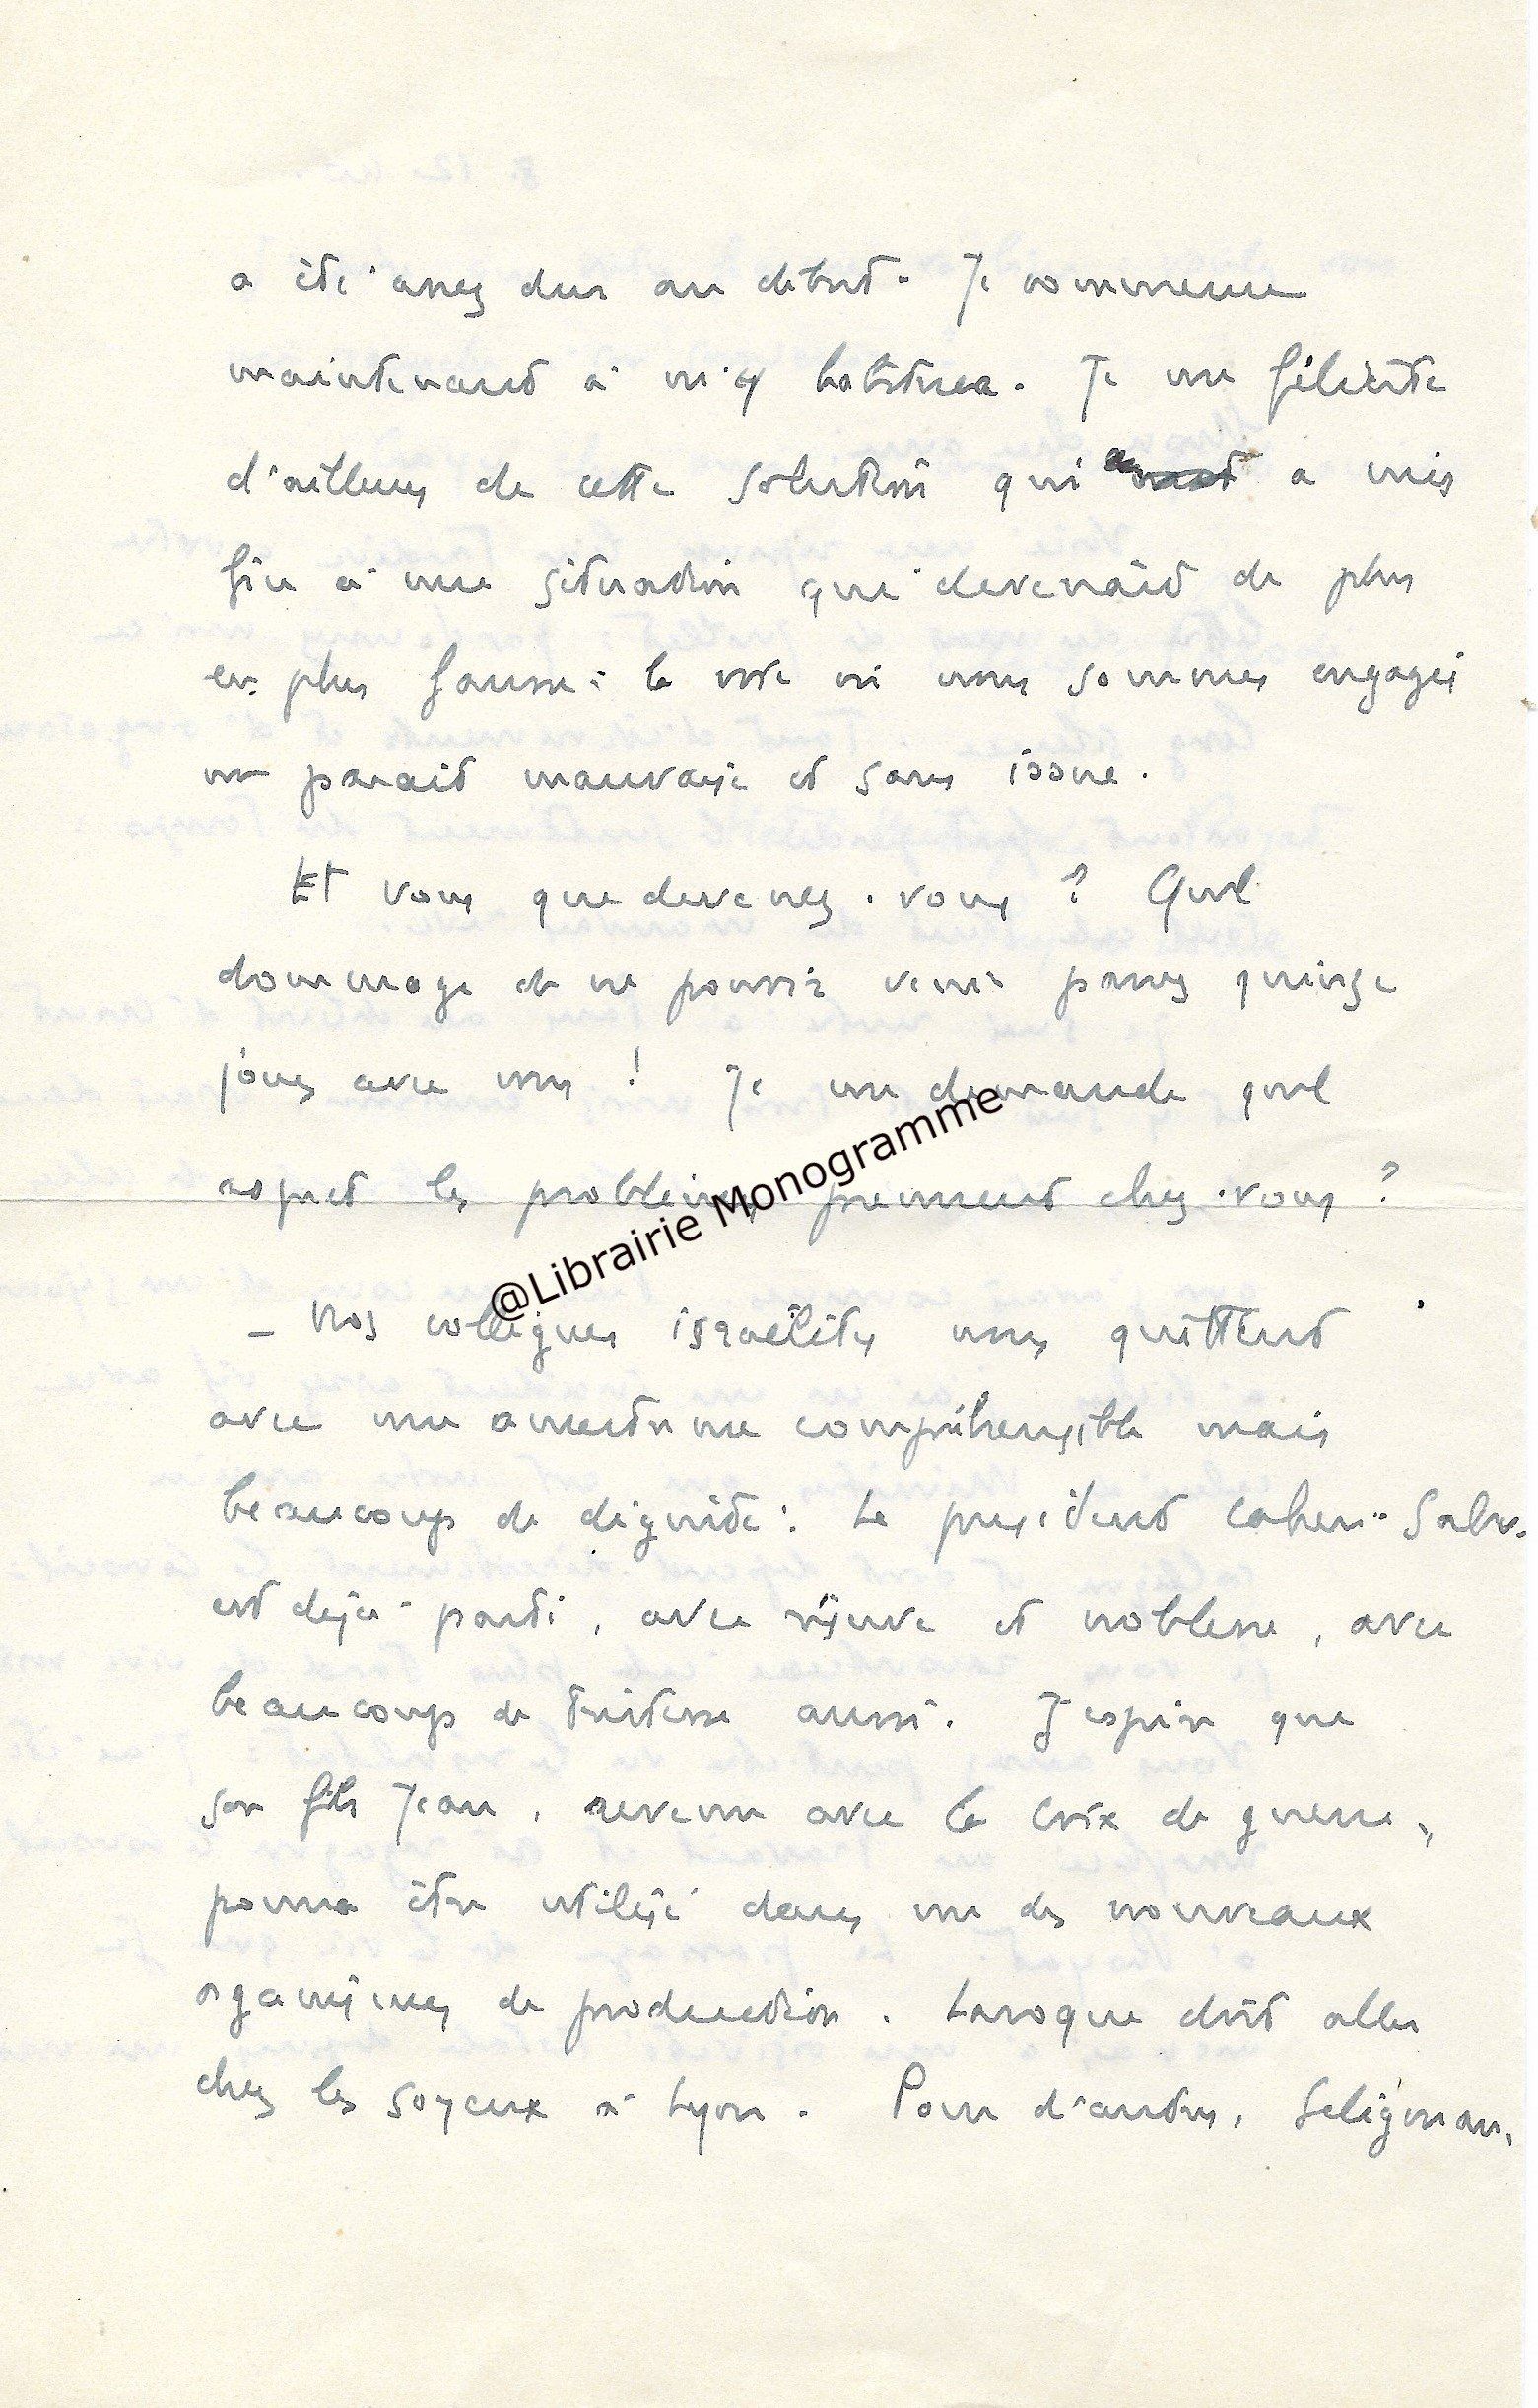 a été assez dur au début. Je commence
maintenant à m'y habituer. Je me félicite
d'ailleurs de cette solution qui a mis
fin à une situation qui devenait de plus
en plus fausse : la voie où nous sommes engagés
me parait mauvaise et sans issue.
Et vous que devenez-vous ? Quel
dommage de ne pouvoir venir passer quinze
jours avec vous ! Je me demande quel
aspect les problèmes prennent chez-vous ?
@Librairie Monogramme
_ Nos collègues israëlites nous quittent
avec une amertume compréhensible mais
beaucoup de dignité : Le président Cahen-Salv.
est déjà parti, avec réserve et noblesse, avec
beaucoup de tristesse aussi. J'espère que
son fils Jean, revenu avec la croix de guerre,
pourra être utilisé dans un des nouveaux
organismes de production. Laroque doit aller
chez les soyeux à Lyon. Pour d'autres, Seligman,